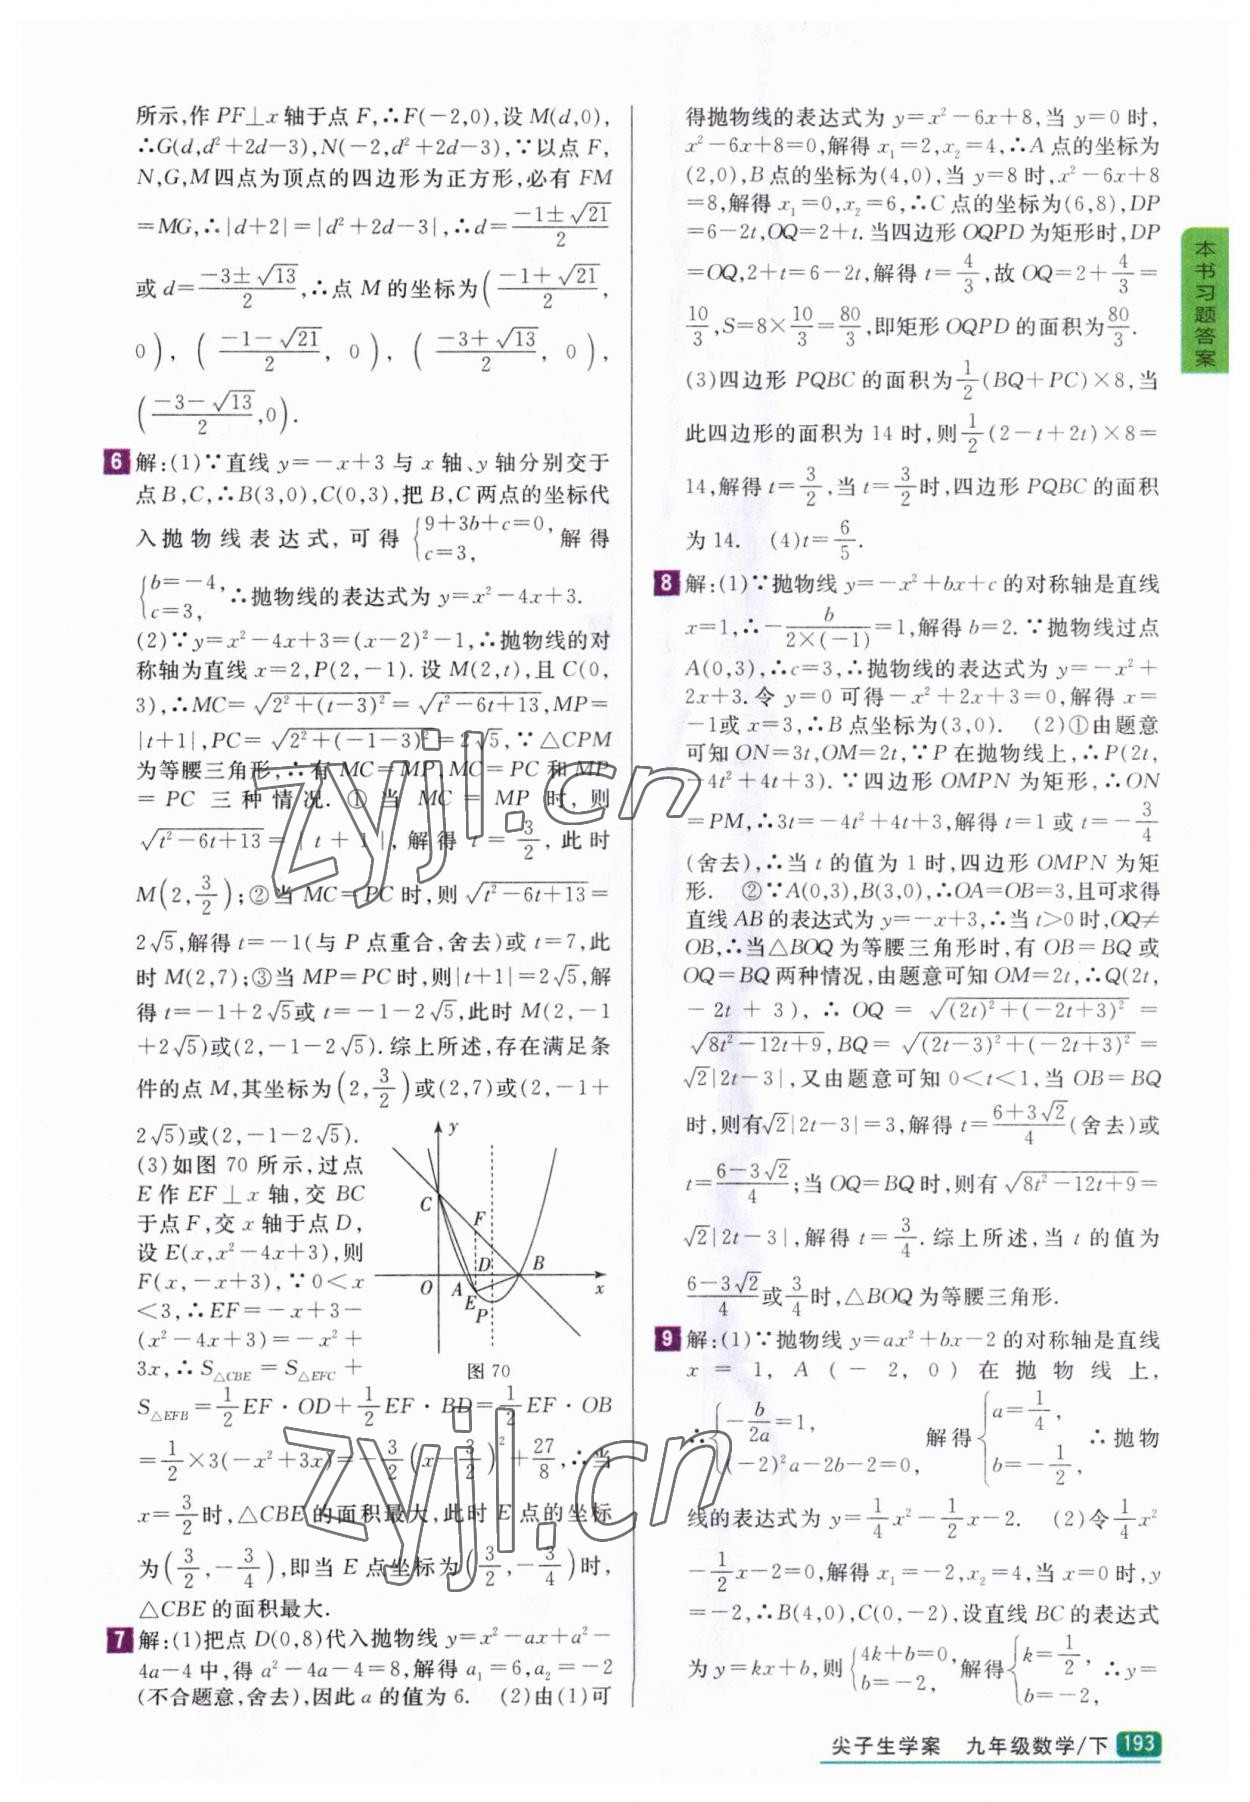 所示,作 PF⊥x 轴于点 F,∴F(-2,0),设 M(d,0),
∴G(d,d²+2d-3),N(-2,d²+2d-3),∵以点 F,
N,G,M四点为顶点的四边形为正方形,必有 FM
=MG,∴|d+2|=|d²+2d-3|,∴d=\frac{-1±√21}{2}
或 d=\frac{-3±√13}{2},∴点 M 的坐标为(\frac{-1+√21}{2},
0),(\frac{-1-√21}{2},0),(\frac{-3+√13}{2},0),
(\frac{-3-√13}{2},0).
6 解:(1)∵直线 y=-x+3 与 x 轴、y 轴分别交于
点 B,C,∴B(3,0),C(0,3),把 B,C 两点的坐标代
入抛物线表达式,可得{9+3b+c=0, c=3, 解得
{b=-4, c=3, ∴抛物线的表达式为 y=x²-4x+3.
(2)∵y=x²-4x+3=(x-2)²-1,∴抛物线的对
称轴为直线 x=2,P(2,-1).设 M(2,t),且 C(0,
3),∴MC=√(2²+(t-3)²)=√(t²-6t+13),MP=
|t+1|,PC=√(2²+(-1-3)²)=2√5,∵△CPM
为等腰三角形,∴有 MC=MP,MC=PC 和 MP
=PC 三种情况.①当 MC=MP 时,则
√(t²-6t+13)=|t+1|,解得 t=\frac{3}{2},此时
M(2,\frac{3}{2});②当 MC=PC 时,则√(t²-6t+13)=
2√5,解得 t=-1(与 P 点重合,舍去)或 t=7,此
时 M(2,7);③当 MP=PC 时,则|t+1|=2√5,解
得 t=-1+2√5或 t=-1-2√5,此时 M(2,-1
+2√5)或(2,-1-2√5).综上所述,存在满足条
件的点 M,其坐标为(2,\frac{3}{2})或(2,7)或(2,-1+
2√5)或(2,-1-2√5).
(3)如图 70 所示,过点
E 作 EF⊥x 轴,交 BC
于点 F,交 x 轴于点 D,
设 E(x,x²-4x+3),则
F(x,-x+3),∵0<x
<3,∴EF=-x+3-
(x²-4x+3)=-x²+
3x,∴S△CBE=S△EFC+
y
C
F
D
B
O
A
E
P
x
图 70
S△EFB=\frac{1}{2}EF·OD+\frac{1}{2}EF·BD=\frac{1}{2}EF·OB
=\frac{1}{2}×3(-x²+3x)=-\frac{3}{2}(x-\frac{3}{2})²+\frac{27}{8},∴当
x=\frac{3}{2}时,△CBE 的面积最大,此时 E 点的坐标
为(\frac{3}{2},-\frac{3}{4}),即当 E 点坐标为(\frac{3}{2},-\frac{3}{4})时,
△CBE 的面积最大.
7 解:(1)把点 D(0,8)代入抛物线 y=x²-ax+a²-
4a-4 中,得 a²-4a-4=8,解得 a₁=6,a₂=-2
(不合题意,舍去),因此 a 的值为 6. (2)由(1)可
得抛物线的表达式为 y=x²-6x+8,当 y=0 时,
x²-6x+8=0,解得 x₁=2,x₂=4,∴A 点的坐标为
(2,0),B 点的坐标为(4,0),当 y=8 时,x²-6x+8
=8,解得 x₁=0,x₂=6,∴C 点的坐标为(6,8),DP
=6-2t,OQ=2+t.当四边形 OQPD 为矩形时,DP
=OQ,2+t=6-2t,解得 t=\frac{4}{3},故 OQ=2+\frac{4}{3}=
\frac{10}{3},S=8×\frac{10}{3}=\frac{80}{3},即矩形 OQPD 的面积为\frac{80}{3}.
(3)四边形 PQBC 的面积为\frac{1}{2}(BQ+PC)×8,当
此四边形的面积为 14 时,则\frac{1}{2}(2-t+2t)×8=
14,解得 t=\frac{3}{2},当 t=\frac{3}{2}时,四边形 PQBC 的面积
为 14. (4)t=\frac{6}{5}.
8 解:(1)∵抛物线 y=-x²+bx+c 的对称轴是直线
x=1,∴-\frac{b}{2×(-1)}=1,解得 b=2.∵抛物线过点
A(0,3),∴c=3,∴抛物线的表达式为 y=-x²+
2x+3.令 y=0 可得-x²+2x+3=0,解得 x=
-1或 x=3,∴B 点坐标为(3,0). (2)①由题意
可知 ON=3t,OM=2t,∵P 在抛物线上,∴P(2t,
-4t²+4t+3).∵四边形 OMPN 为矩形,∴ON
=PM,∴3t=-4t²+4t+3,解得 t=1 或 t=-\frac{3}{4}
(舍去),∴当 t 的值为 1 时,四边形 OMPN 为矩
形. ②∵A(0,3),B(3,0),∴OA=OB=3,且可求得
直线 AB 的表达式为 y=-x+3,∴当 t>0 时,OQ≠
OB,∴当△BOQ 为等腰三角形时,有 OB=BQ 或
OQ=BQ 两种情况,由题意可知 OM=2t,∴Q(2t,
-2t+3),∴OQ=√((2t)²+(-2t+3)²)=
√(8t²-12t+9),BQ=√((2t-3)²+(-2t+3)²)=
√2|2t-3|,又由题意可知 0<t<1,当 OB=BQ
时,则有√2|2t-3|=3,解得 t=\frac{6+3√2}{4}(舍去)或
t=\frac{6-3√2}{4};当 OQ=BQ 时,则有√(8t²-12t+9)=
√2|2t-3|,解得 t=\frac{3}{4}.综上所述,当 t 的值为
\frac{6-3√2}{4}或\frac{3}{4}时,△BOQ 为等腰三角形.
9 解:(1)∵抛物线 y=ax²+bx-2 的对称轴是直线
x=1,A(-2,0)在抛物线上,
∴{-\frac{b}{2a}=1, (-2)²a-2b-2=0, 解得{a=\frac{1}{4}, b=-\frac{1}{2}, ∴抛物
线的表达式为 y=\frac{1}{4}x²-\frac{1}{2}x-2. (2)令\frac{1}{4}x²
-\frac{1}{2}x-2=0,解得 x₁=-2,x₂=4,当 x=0 时,y
=-2,∴B(4,0),C(0,-2),设直线 BC 的表达式
为 y=kx+b,则{4k+b=0, b=-2, 解得{k=\frac{1}{2}, b=-2, ∴y=
本书习题答案
zyjl.cn
zyjl.cn
尖子生学案 九年级数学/下 193